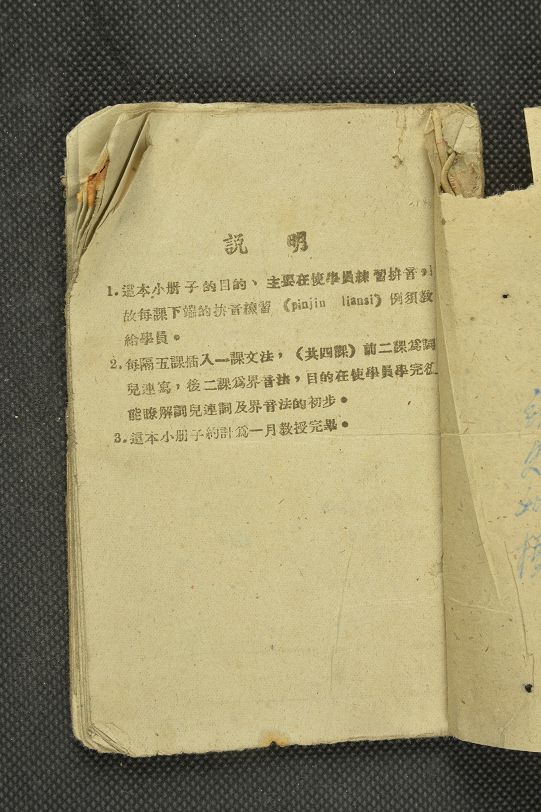 説 明
1. 這本小册子的目的、主要在使學員練習拚音，
故每課下端的拚音練習《pinjin liansi》例須教
給學員。
2. 每隔五課插入一課文法，（共四課）前二課爲詞
兒連寫，後二課爲界音法，目的在使學員學完後
能瞭解詞兒連詞及界音法的初步。
3. 這本小册子約計爲一月教授完畢。